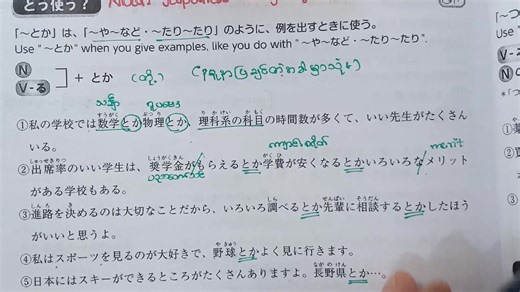 どう使う?
「〜とか」は、「〜や〜など・〜たり〜たり」のように、例を出すときに使う。
Use "〜とか" when you give examples, like you do with "〜や〜など・〜たり〜たり".
N
V-る
+ とか
①私の学校では数学とか物理とか、理科系の科目の時間数が多くて、いい先生がたくさん
いる。
②出席率のいい学生は、奨学金がもらえるとか学費が安くなるとかいろいろなメリット
がある学校もある。
③進路を決めるのは大切なことだから、いろいろ調べるとか先輩に相談するとかしたほう
がいいと思うよ。
④私はスポーツを見るのが大好きで、野球とかよく見に行きます。
⑤日本にはスキーができるところがたくさんありますよ。長野県とか…。
merit
Use
N
V-る